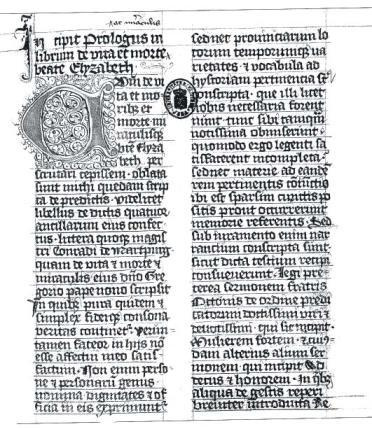 et miraculis
In cipit Prologus in
librum de vita et morte
beate Elyzabeth
Cum de vi
ta et mo
ribus et
morte mi
raculisque
bte Elyza
beth per
scrutari cepissem oblata
sunt michi quedam scrip
ta de predictis videlicet
libellus de dictis quatuor
ancillarum eius confec
tus littera quoque magis
tri Conradi de Martpurg
quam de vita et morte et
miraculis eius dno Gre
gorio pape nono scripsit
In quibus pura quidem et
simplex fideique consona
veritas continet Verum
tamen fateor in hiis no
esse affectui meo satis
factum Non enim perso
ne et personarum genus
nomina dignitates et of
ficia in eis exprimunt
sed nec provinciarum lo
corum temporumque va
rietates et vocabula ad
hystoriam pertinencia sunt
conscripta que illi licet
nobis necessaria forent
tunc sibi tamquam
notissima obmiserunt
quomodo ergo legenti sa
tisfacerent incompleta
sed nec materie ad eande
rem pertinentis continuatio
ibi est sparsim cunctis po
sitis prout occurrerunt
memorie referentis Sed
sub iuramento enim nar
rancium conscripta sunt
sicut dicta testium recipi
consueverunt Legi pre
terea sermonem fratris
Ottonis de ordine predi
catorum doctissimi viri et
devotissimi qui sic incipit
Mulierem fortem et cuius
dam alterius alium ser
monem qui incipit Ad
decus et honorem In quibus
aliqua de gestis reperi
breviter introducta Re